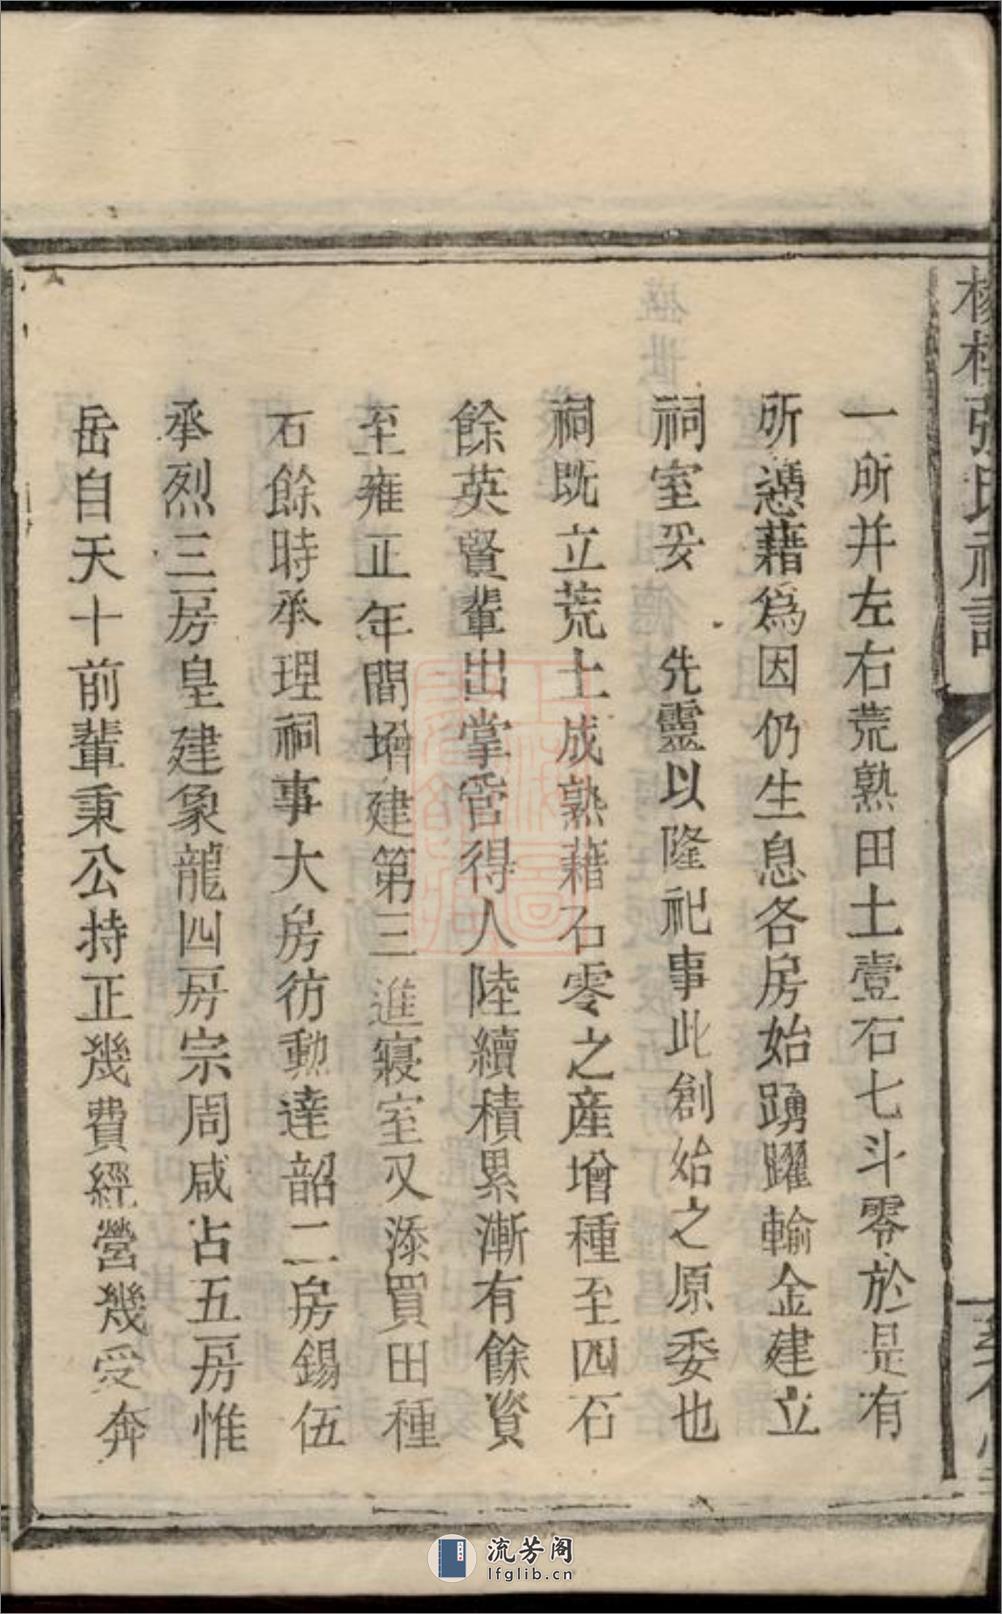 一所并左右荒熟田土壹石七斗零於是有
所憑藉為因仍生息各房始踴躍輸金建立
祠室妥　先靈以隆祀事此創始之原委也
祠既立荒土成熟藉石零之產增種至四石
餘英賢輩出掌管得人陸續積累漸有餘資
至雍正年間增建第三進寢室又添買田種
石餘時承理祠事大房彷動達韶二房錫伍
承烈三房皇建象龍四房宗周咸占五房惟
岳自天十前輩秉公持正幾費經營幾受奔
流芳阁
lfglib.cn